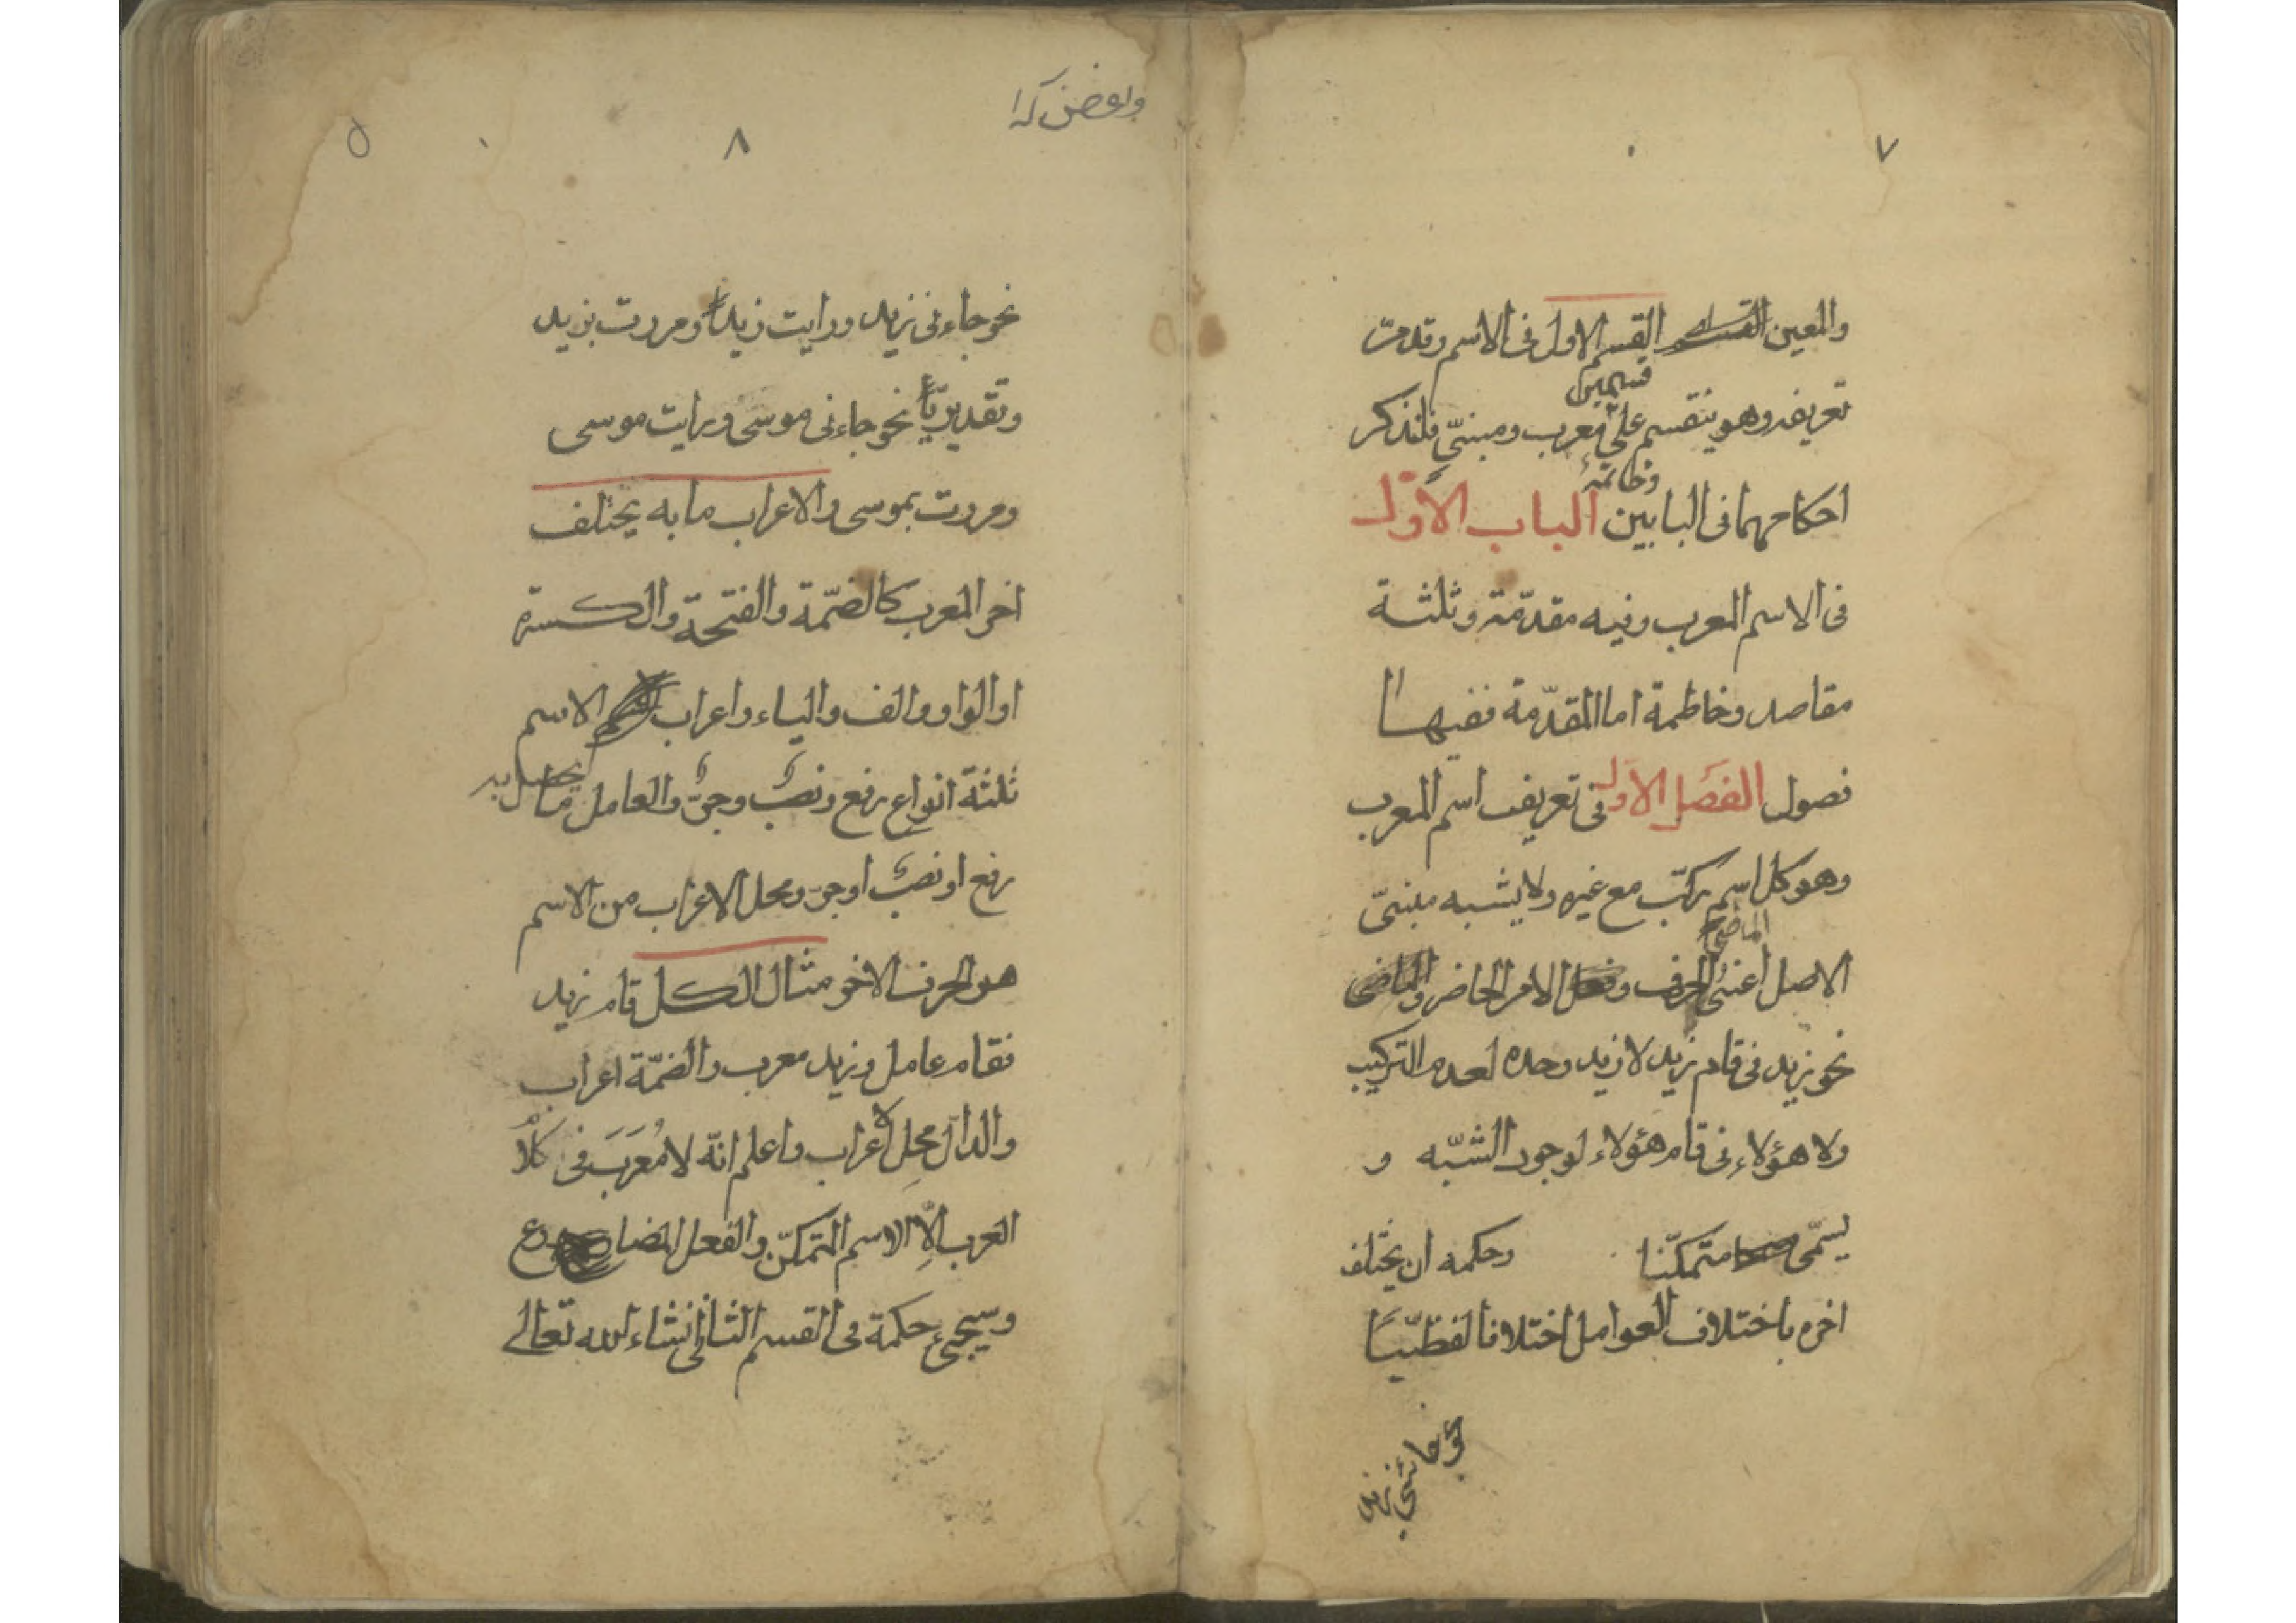 ٧
والمعين القسم الاول فى الاسم وقد مرّ
تعريفه وهو ينقسم على قسمين معرب ومبنىّ فلنذكر
احكامهما فى البابين وخاتمة الباب الاوّل
فى الاسم المعرب وفيه مقدّمة وثلثة
مقاصد وخاطمة اما المقدّمة ففيها
فصول الفصل الاول فى تعريف اسم المعرب
وهو كل اسم ركّب مع غيره ولا يشبه مبنىّ
الاصل اعنى الحرف الماضى والامر الحاضر
نحو زيد فى قام زيد لا زيد وحده لعدم التركيب
ولا هؤلاء فى قام هؤلاء لوجود الشبّه و
يسمّى متمكّنا وحكمه ان يختلف
اخره باختلاف العوامل اختلافا لفظيّا
نحو جائنى زيد
٨
٥
نحو جاءنى زيد ورايت زيداً ومررت بزيد
وتقديريّاً نحو جاءنى موسى ورايت موسى
ومررت بموسى والاعراب ما به يختلف
اخر المعرب كالضمّة والفتحة والكسرة
او الواو والف والياء واعراب الاسم
ثلثة انواع رفع ونصب وجرّ والعامل ما يحصل به
رفع او نصب او جرّ ومحل الاعراب من الاسم
هو الحرف الاخر مثال الكل قام زيد
فقام عامل وزيد معرب والضمّة اعراب
والدال محل الاعراب واعلم انّه لا مُعَرَبَ فى كلا
العرب الّا الاسم المتمكّن والفعل المضارع
وسيجىء حكمة فى القسم الثانى انشاء الله تعالى